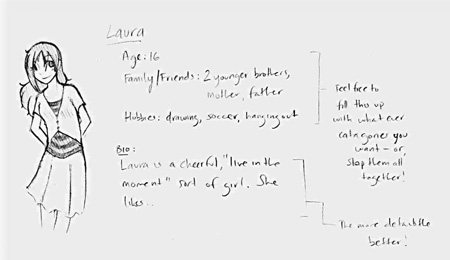 Laura
Age: 16
Family/Friends: 2 younger brothers,
mother, father
Hobbies: drawing, soccer, hanging out
Bio:
Laura is a cheerful, "live in the
moment" sort of girl. She
likes...
Feel free to
fill this up
with what ever
categories you
want - or,
stop them all
together!
The more details the
better!